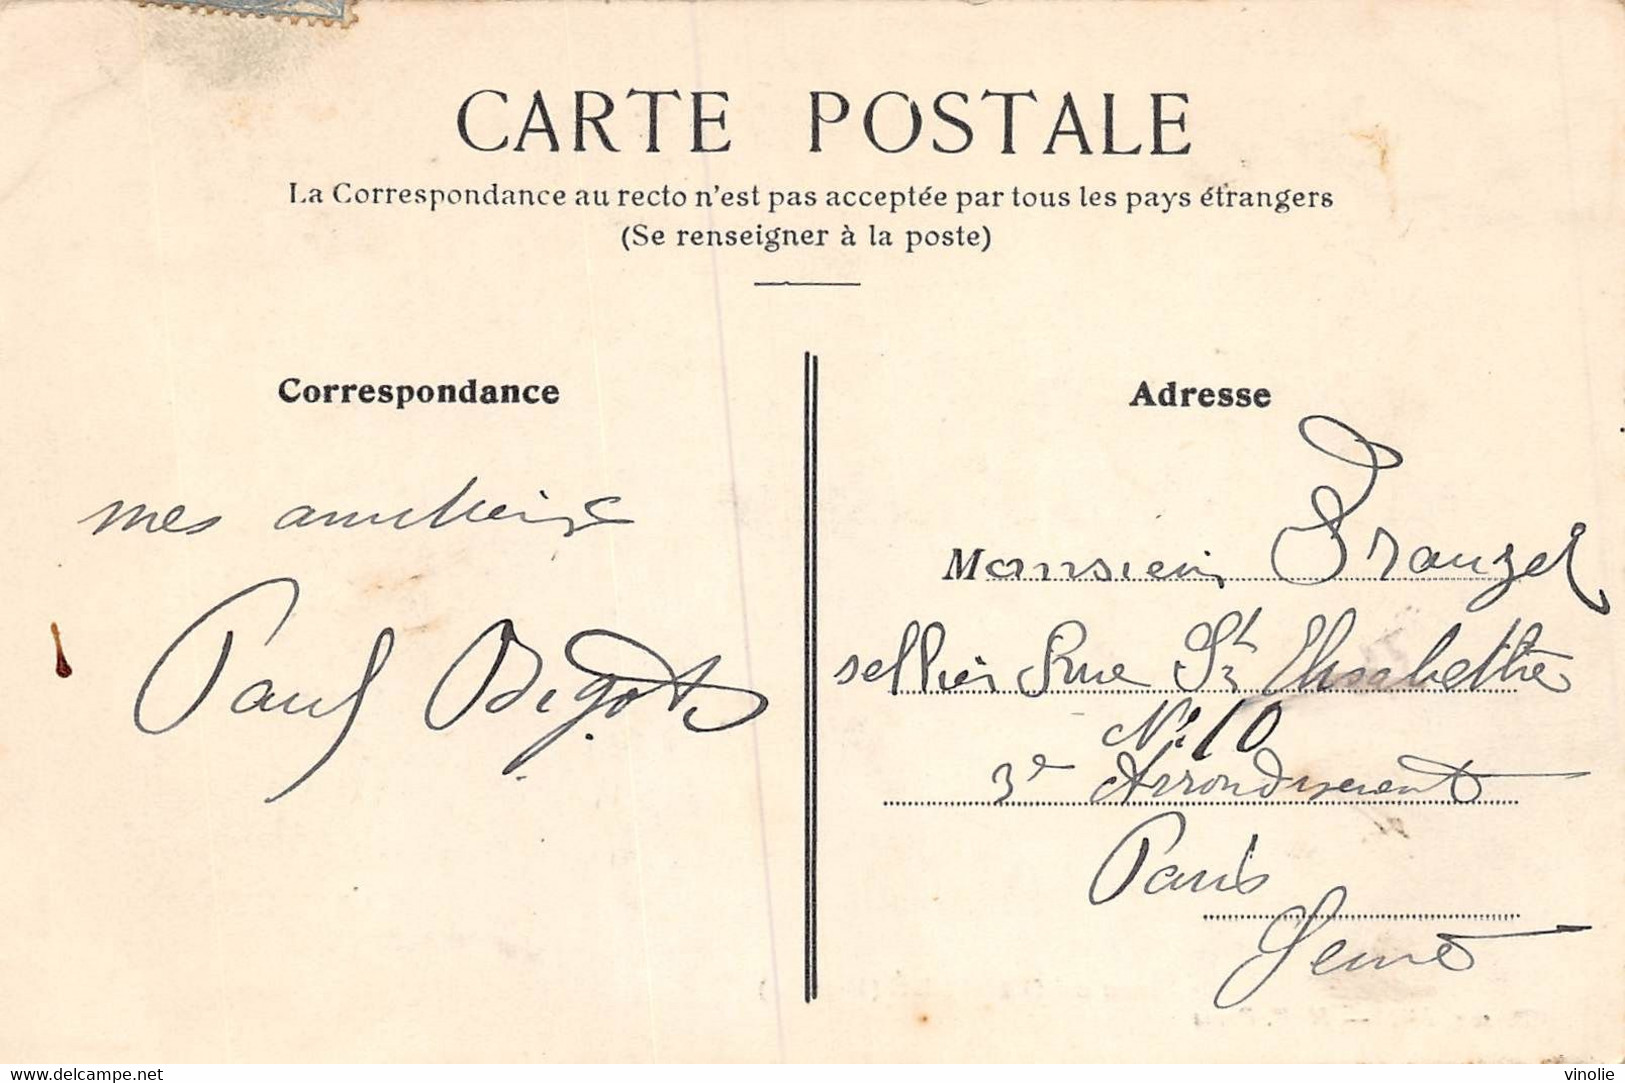 CARTE POSTALE
La Correspondance au recto n'est pas acceptée par tous les pays étrangers
(Se renseigner à la poste)
Correspondance
mes
Paul Bigot
Adresse
Monsieur Franzel
sellier Rue St Elisabethe
No 10
3e Arrondissement
Paris
Seine
delcampe.net
vinolie